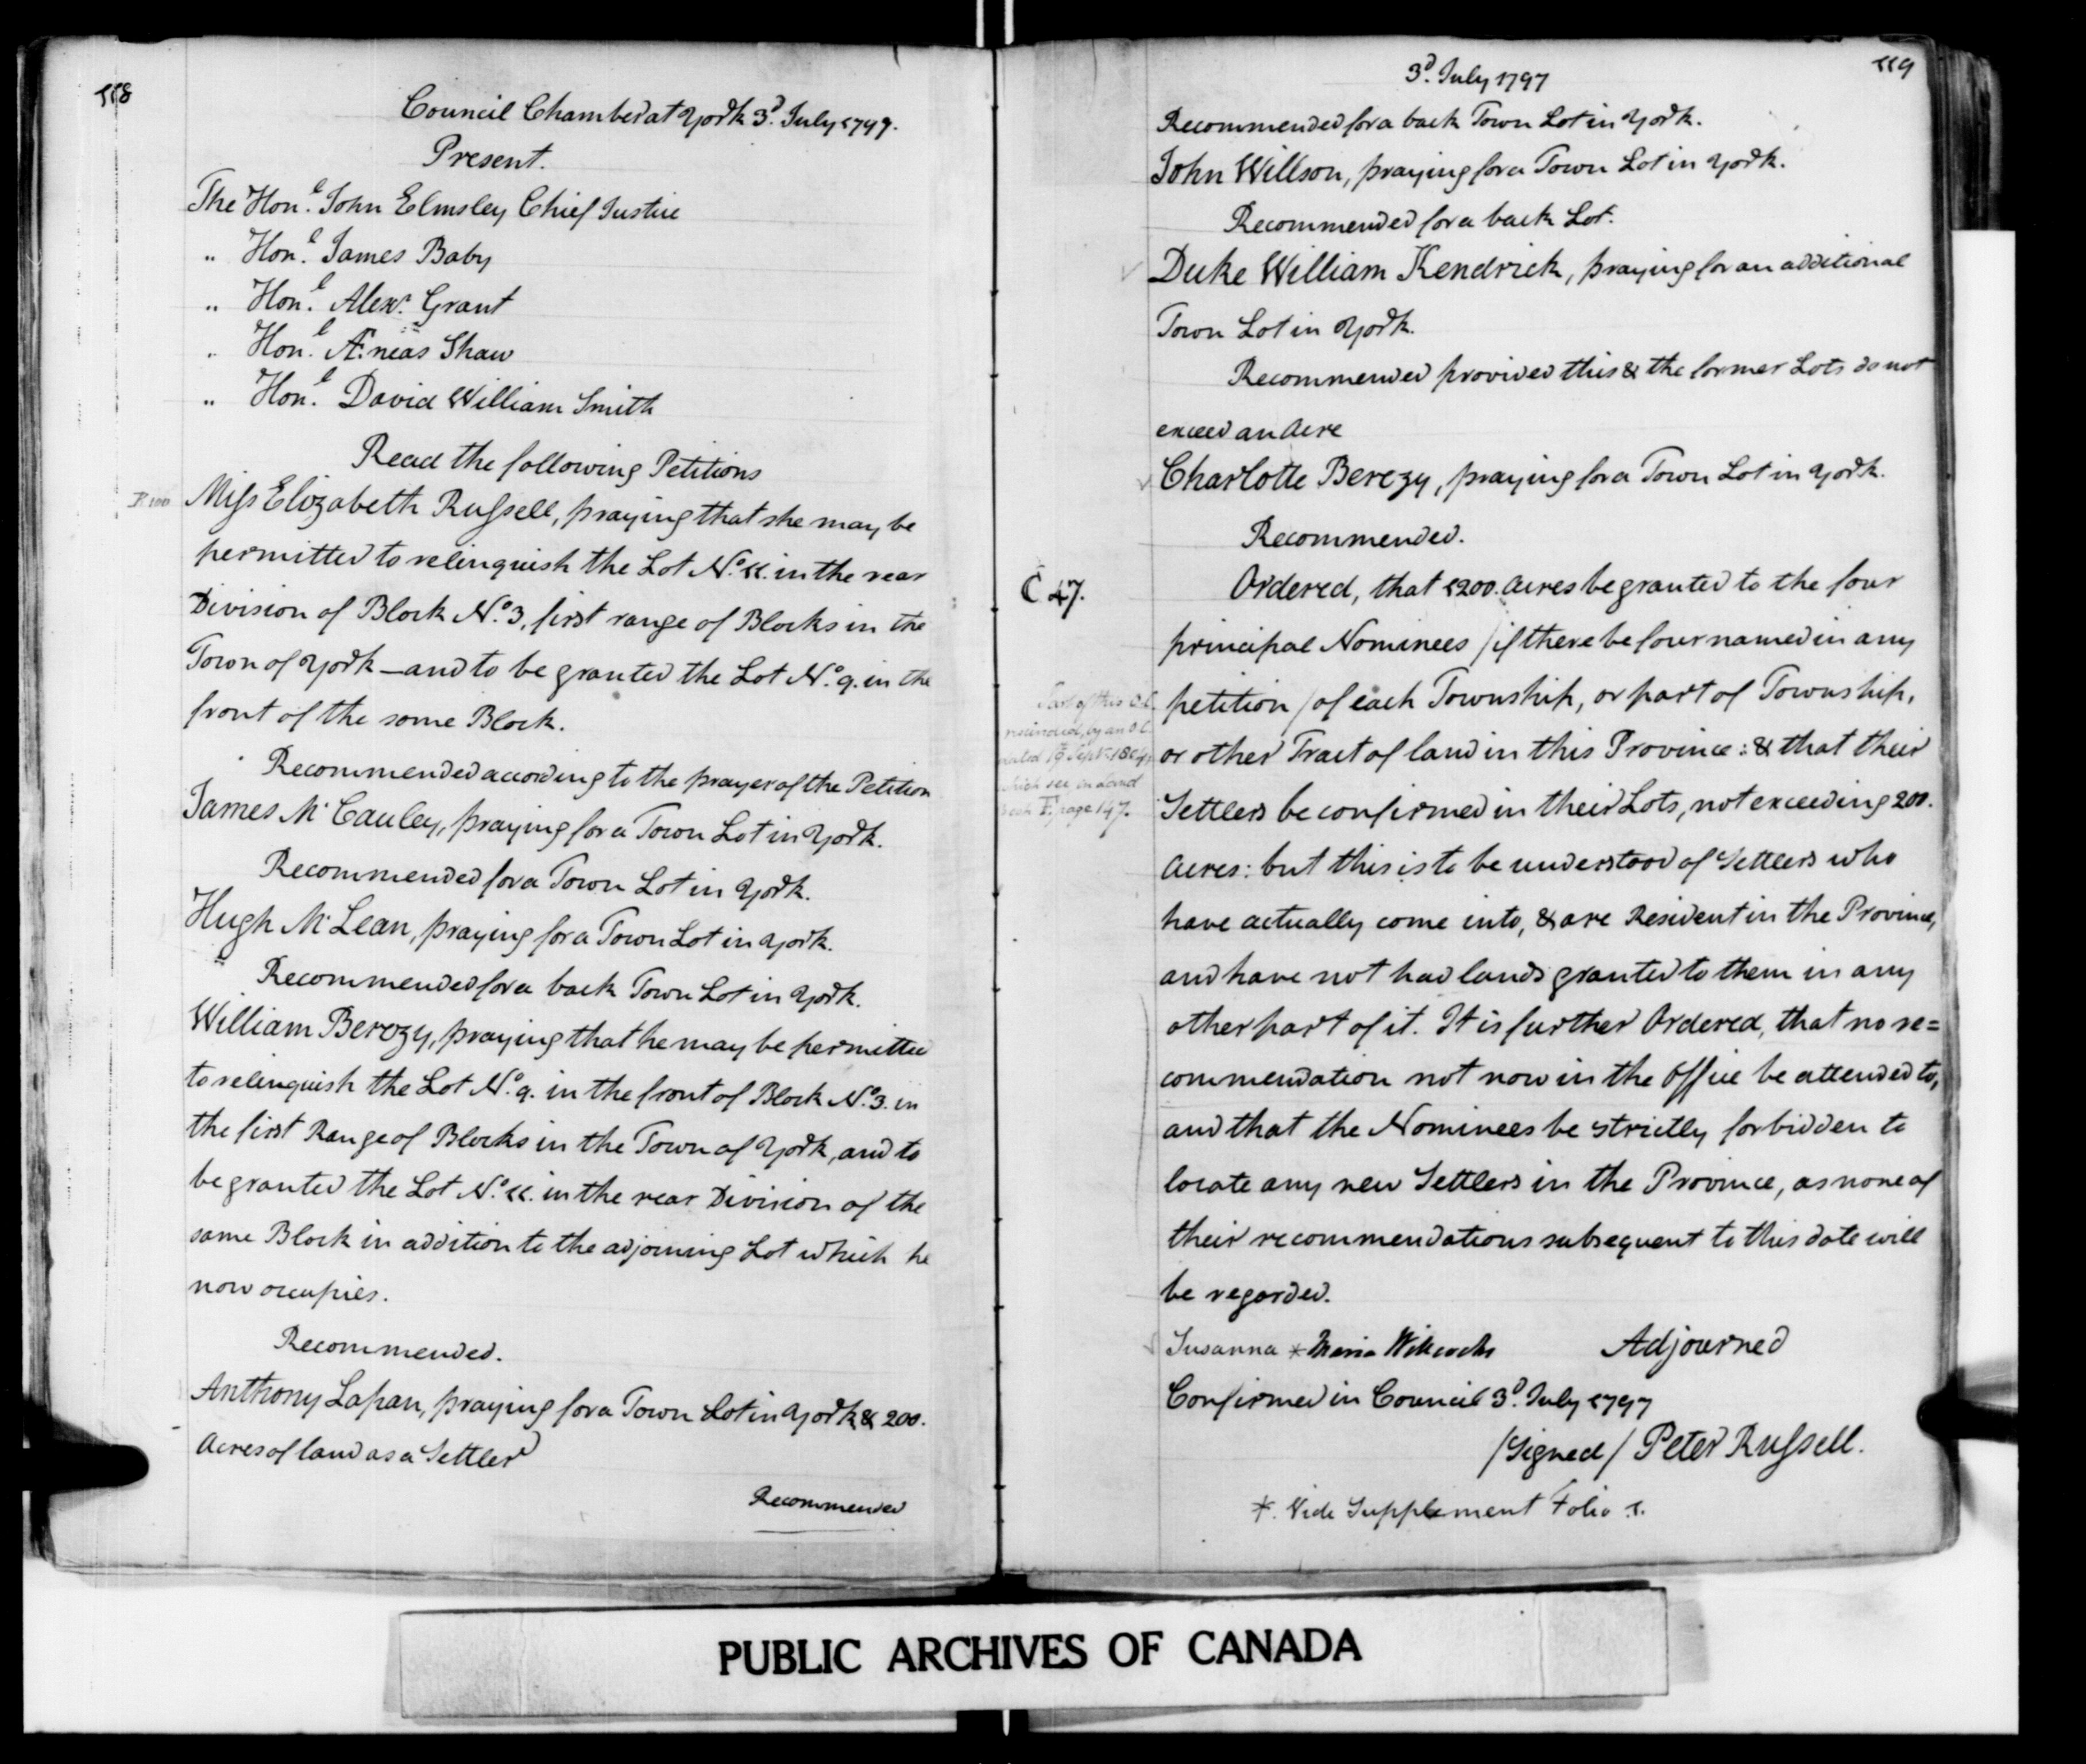 118
Council Chamber at York 3.d July 1797.
Present.
The Hon.l John Elmsley Chief Justice
" Hon.l James Baby
" Hon.l Alexr. Grant
" Hon.l Æneas Shaw
" Hon.l David William Smith
Read the following Petitions
Miss Elizabeth Russell, praying that she may be
permitted to relinquish the Lot No. 11. in the rear
Division of Block No. 3, first range of Blocks in the
Town of York — and to be granted the Lot No. 9. in the
front of the same Block.
Recommended according to the prayer of the Petition
James McCauley, praying for a Town Lot in York.
Recommended for a Town Lot in York.
Hugh McLean, praying for a Town Lot in York.
Recommended for a back Town Lot in York.
William Berczy, praying that he may be permitted
to relinquish the Lot No. 9. in the front of Block No. 3. in
the first Range of Blocks in the Town of York, and to
be granted the Lot No. 11. in the rear Division of the
same Block in addition to the adjoining Lot which he
now occupies.
Recommended.
Anthony Lapan, praying for a Town Lot in York & 200.
Acres of land as a Settler
Recommended
119
3.d July 1797
Recommended for a back Town Lot in York.
John Willson, praying for a Town Lot in York.
Recommended for a back Lot.
Duke William Kendrick, praying for an additional
Town Lot in York.
Recommended provided this & the former Lots do not
exceed an Acre
Charlotte Berczy, praying for a Town Lot in York.
Recommended.
C 47.
Ordered, that 1200. Acres be granted to the four
principal Nominees / if there be four named in any
petition / of each Township, or part of Township,
or other Tract of land in this Province: & that their
Settlers be confirmed in their Lots, not exceeding 200.
Acres: but this is to be understood of Settlers who
have actually come into, & are Resident in the Province,
and have not had lands granted to them in any
other part of it. It is further Ordered, that no re=
commendation not now in the Office be attended to,
and that the Nominees be strictly forbidden to
locate any new Settlers in the Province, as none of
their recommendations subsequent to this date will
be regarded.
Part of this O.C.
rescinded, by an O.C.
dated 19 Sept. 1804,
which see in Land
Book F. page 147.
Susanna * Maria Willcocks Adjourned
Confirmed in Council 3.d July 1797
/Signed/ Peter Russell.
*. Vide Supplement Folio 1.
PUBLIC ARCHIVES OF CANADA